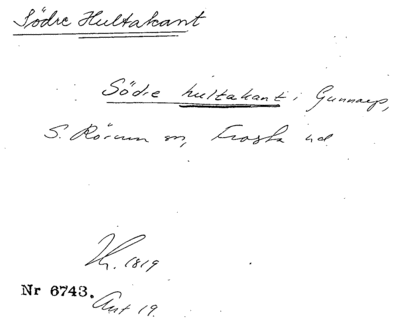 Södre Hultakant
Södre hultakant i Gunnarp,
S. Rörum sn, Frosta hd
Th. 1819
Nr 6743.
Ant 19.